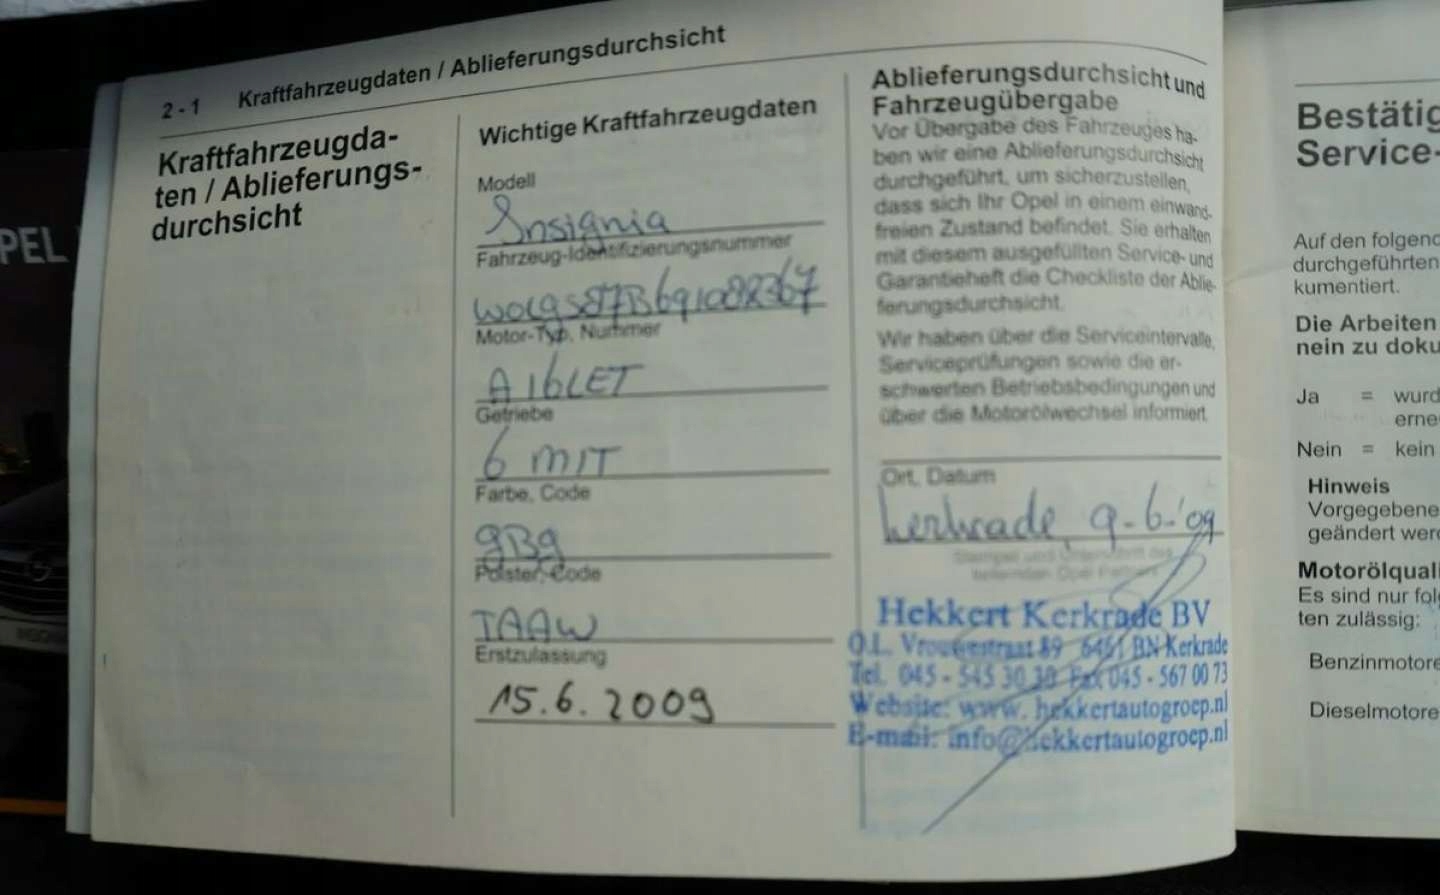 PEL
2 - 1 Kraftfahrzeugdaten / Ablieferungsdurchsicht
Kraftfahrzeugda-
ten / Ablieferungs-
durchsicht
Wichtige Kraftfahrzeugdaten
Modell
Insignia
Fahrzeug-Identifizierungsnummer
W0LGS87B691082367
Motor-Typ, Nummer
A16LET
Getriebe
6 MIT
Farbe, Code
gBg
Polster, Code
TAAW
Erstzulassung
15.6.2009
Ablieferungsdurchsicht und
Fahrzeugübergabe
Vor Übergabe des Fahrzeuges ha-
ben wir eine Ablieferungsdurchsicht
durchgeführt, um sicherzustellen,
dass sich Ihr Opel in einem einwand-
freien Zustand befindet. Sie erhalten
mit diesem ausgefüllten Service- und
Garantieheft die Checkliste der Ablie-
ferungsdurchsicht.
Wir haben über die Serviceintervalle,
Serviceprüfungen sowie die er-
schwerten Betriebsbedingungen und
über die Motorölwechsel informiert.
Ort, Datum
kerkrade, 9-6-'09
Stempel und Unterschrift des
liefernden Opel Partners
Hekkert Kerkrade BV
O.L. Vrouwestraat 89 6461 BN Kerkrade
Tel. 045 - 545 30 30 Fax 045 - 567 00 73
Website: www.hekkertautogroep.nl
E-mail: info@hekkertautogroep.nl
Bestätig
Service-
Auf den folgend
durchgeführten
kumentiert.
Die Arbeiten
nein zu doku
Ja = wurd
erne
Nein = kein
Hinweis
Vorgegebene
geändert werd
Motorölquali
Es sind nur folg
ten zulässig:
Benzinmotore
Dieselmotore